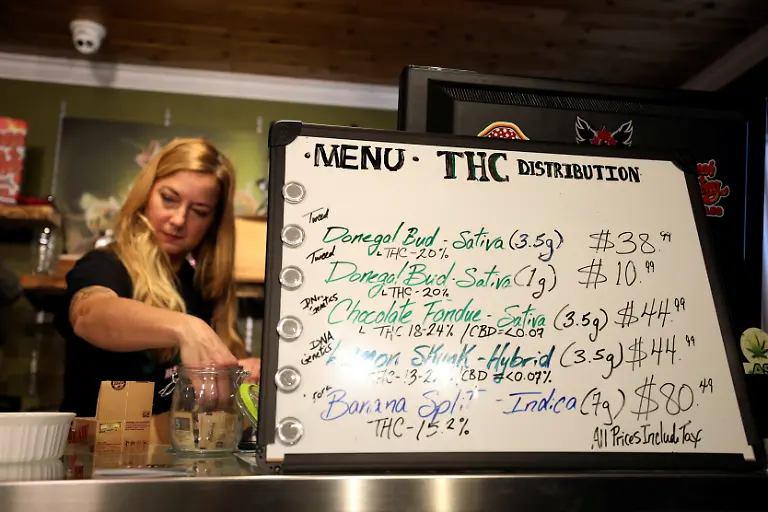 · MENU · THC DISTRIBUTION
Tweed
Donegal Bud - Sativa (3.5g) $38.99
└THC-20%
Tweed
Donegal Bud-Sativa (1g) $10.99
└THC-20%
DNA Genetics
Chocolate Fondue - Sativa (3.5g) $44.99
└ THC 18-24% / CBD <0.07
DNA Genetics
Skunk - Hybrid (3.5g) $44.99
CBD <0.07%
Banana Split - Indica (7g) $80.49
THC-15.2%
All Prices Includ Tax